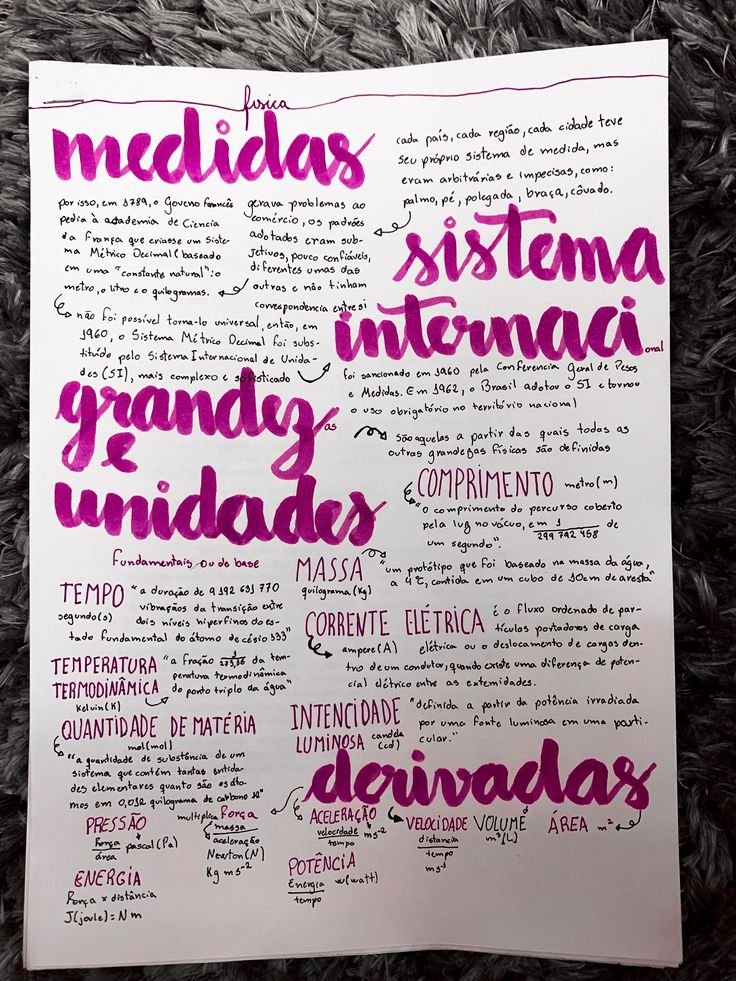 física
medidas
cada país, cada região, cada cidade teve
seu próprio sistema de medida, mas
eram arbitrárias e impecisas, como:
palmo, pé, polegada, braça, côvado.
gerava problemas ao
comércio, os padrões
adotados eram sub-
jetivos, pouco confiáveis,
diferentes umas das
outras e não tinham
correspondencia entre si
por isso, em 1789, o Governo Francês
pediu à academia de Ciencia
da França que criasse um Siste-
ma Métrico Decimal (baseado
em uma "constante natural": o
metro, o litro e o quilogramas.
não foi possível torna-lo universal, então, em
1960, o Sistema Métrico Decimal foi subs-
tituído pelo Sistema Internacional de Unida-
des (SI), mais complexo e sofisticado
sistema
internacional
foi sancionado em 1960 pela Conferencia Geral de Pesos
e Medidas. Em 1962, o Brasil adotou o SI e tornou
o uso obrigatório no território nacional
grandezas
e
unidades
são aquelas a partir das quais todas as
outras grandezas físicas são definidas
Fundamentais ou de base
COMPRIMENTO metro (m)
"o comprimento do percurso coberto
pela luz no vácuo, em 1 de
299 792 458
um segundo".
MASSA
quilograma (Kg)
"um protótipo que foi baseado na massa da água,
a 4°C, contida em um cubo de 10cm de aresta"
TEMPO
segundo (s)
"a duração de 9 192 631 770
vibrações da transição entre
dois níveis hiperfinos do es-
tado fundamental do átomo de césio 133"
CORRENTE ELÉTRICA
ampere (A)
é o fluxo ordenado de par-
tículas portadoras de carga
elétrica ou o deslocamento de cargas den-
tro de um condutor, quando existe uma diferença de poten-
cial elétrico entre as extemidades.
TEMPERATURA
TERMODINÂMICA
Kelvin (K)
"a fração da tem-
peratura termodinâmica
do ponto triplo da água"
QUANTIDADE DE MATÉRIA
mol (mol)
"a quantidade de substância de um
sistema que contém tantas entida-
des elementares quanto são os áto-
mos em 0,012 quilograma de carbono 12"
INTENCIDADE
LUMINOSA candela
(cd)
"definida a partir da potência irradiada
por uma fonte luminosa em uma parti-
cular."
derivadas
PRESSÃO
Força
área
pascal (Pa)
multiplica Força
massa
aceleração
Newton (N)
Kg m s⁻²
ACELERAÇÃO
velocidade
tempo
m s⁻²
VELOCIDADE
distancia
tempo
m s⁻¹
VOLUME
m³ (L)
ÁREA m²
ENERGIA
Força x distância
J (joule) = N m
POTÊNCIA
Energia
tempo
w (watt)